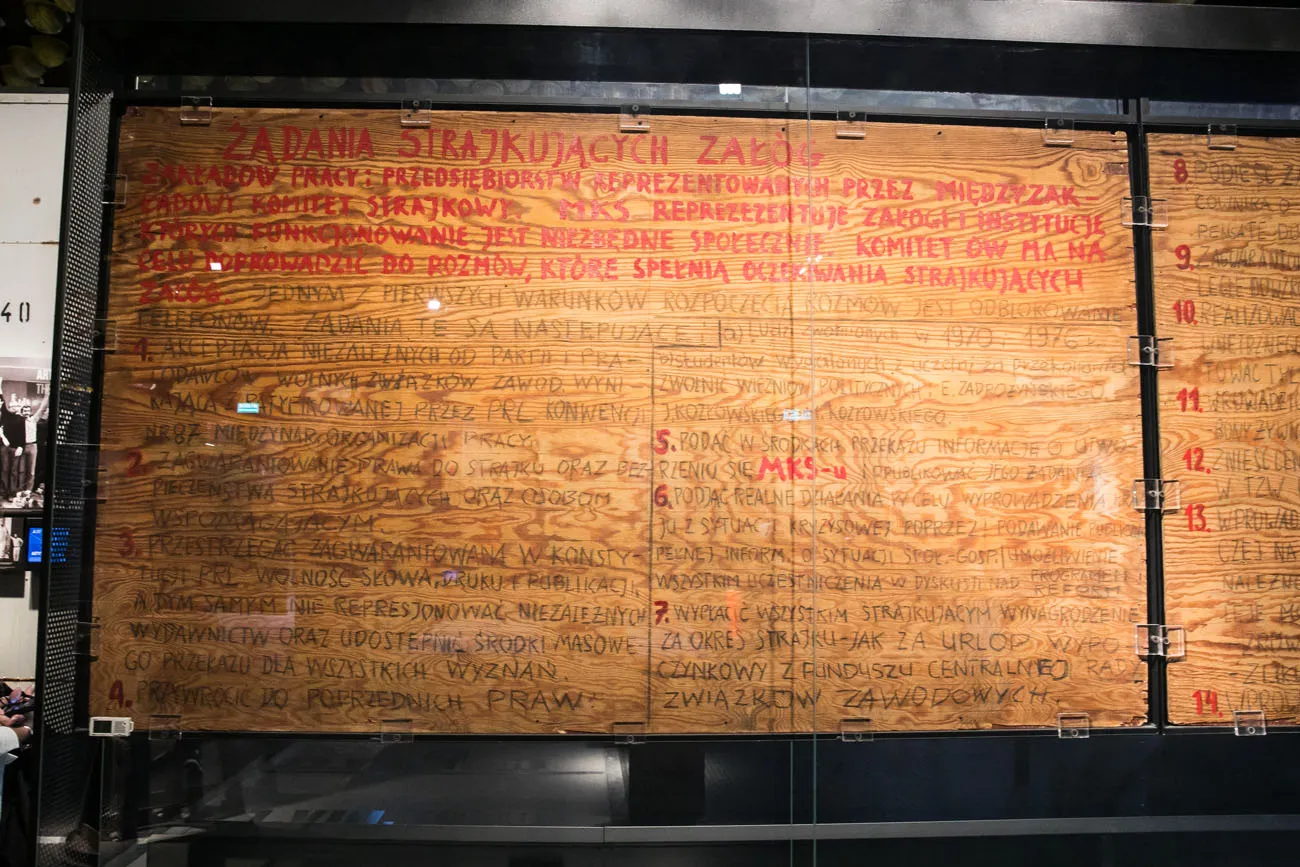 ŻĄDANIA STRAJKUJĄCYCH ZAŁÓG
ZAKŁADÓW PRACY i PRZEDSIĘBIORSTW REPREZENTOWANYCH PRZEZ MIĘDZYZAK-
ŁADOWY KOMITET STRAJKOWY. MKS REPREZEZENTUJE ZAŁOGI I INSTYTUCJE
KTÓRYCH FUNKCJONOWANIE JEST NIEZBĘDNE SPOŁECZNIE. KOMITET ÓW MA NA
CELU DOPROWADZIĆ DO ROZMÓW, KTÓRE SPEŁNIĄ OCZEKIWANIA STRAJKUJĄCYCH
ZAŁÓG. JEDNYM Z PIERWSZYCH WARUNKÓW ROZPOCZĘCIA ROZMÓW JEST ODBLOROWANIE
TELEFONÓW. ŻĄDANIA TE SĄ NASTĘPUJĄCE:
1. AKCEPTACJA NIEZALEŻNYCH OD PARTII PRA-
CODAWCÓW WOLNYCH ZWIĄZKÓW ZAWOD. WYNI
KAJĄCA Z RATYFIKOWANEJ PRZEZ PRL KONWENCJI
NR 87 MIĘDZYNAR. ORGANIZACJI PRACY.
2. ZAGWARANTOWANIE PRAWA DO STRAJKU ORAZ BEZ-
PIECZEŃSTWA STRAJKUJĄCYCH ORAZ OSOBOM
WSPOMAGAJĄCYM
3. PRZESTRZEGAĆ ZAGWARANTOWANĄ W KONSTY-
TUCJI PRL WOLNOŚĆ SŁOWA, DRUKU I PUBLIKACJI,
A TYM SAMYM NIE REPRESJONOWAĆ NIEZALEŻNYCH
WYDAWNICTW ORAZ UDOSTĘPNIĆ ŚRODKI MASOWE-
GO PRZEKAZU DLA WSZYSTKICH WYZNAŃ.
4. PRZYWRÓCIĆ DO POPRZEDNICH PRAW:
a) Ludzi zwolnionych w 1970 i 1976 r.
b) studentów wydalonych z uczelni za przekonania
ZWOLNIĆ WIĘŹNIÓW POLITYCZNYCH E. ZADROŻYŃSKIEGO,
J KOZŁOWSKIEGO M KOZŁOWSKIEGO
5. PODAĆ W ŚRODKACH PRZEKAZU INFORMACJĘ O UTWO-
RZENIU SIĘ MKS-u I OPUBLIKOWAĆ JEGO ŻĄDANIA
6. PODJĄĆ REALNE DZIAŁANIA W CELU WYPROWADZENIA KRA
JU Z SYTUACJI KRYZYSOWEJ POPRZEZ: PODAWANIE PUBLICZNIE
PEŁNEJ INFORM. O SYTUACJI SPOŁ.-GOSP. UMOŻLIWIENIE
WSZYSTKIM UCZESTNICZENIA W DYSKUSJI NAD PROGRAMEM
REFORM
7. WYPŁACIĆ WSZYSTKIM STRAJKUJĄCYM WYNAGRODZENIE
ZA OKRES STRAJKU-JAK ZA URLOP WYPO
CZYNKOWY Z FUNDUSZU CENTRALNEJ RADY
ZWIĄZKÓW ZAWODOWYCH.
8 PODNIEŚĆ Z
9.
10. REALIZOWAĆ
11.
12. ZNIEŚĆ CEN
W TZW
13. WPROWA
CZEJ NA
14.